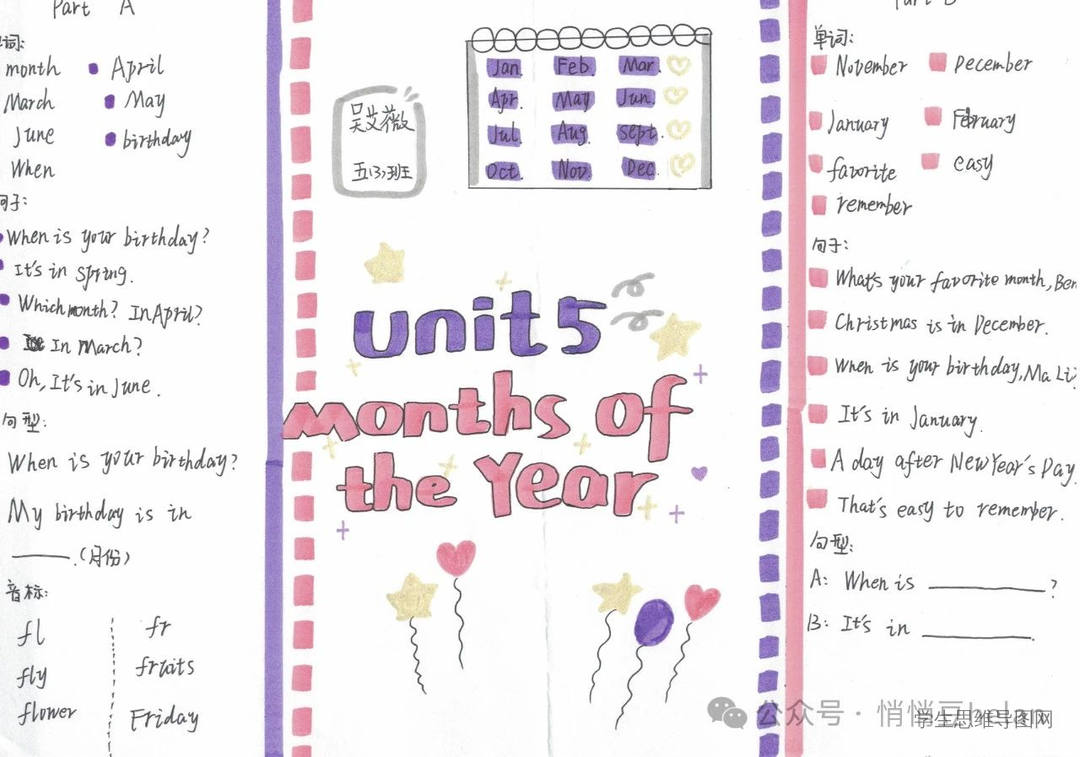 Part A
单词:
month April
March May
June birthday
When
句子:
When is your birthday?
It's in spring.
Which month? In April?
In March?
Oh, It's in June.
句型:
When is your birthday?
My birthday is in
______.(月份)
音标:
fl fr
fly fruits
flower Friday
吴艾薇
五(3)班
Jan. Feb. Mar.
Apr. May Jun.
Jul. Aug. Sept.
Oct. Nov. Dec.
unit 5
months of
the Year
单词:
November December
January February
favorite easy
remember
句子:
What's your favorite month, Ben
Christmas is in December.
When is your birthday, Ma Li
It's in January.
A day after New Year's Day.
That's easy to remember.
句型:
A: When is ______?
B: It's in ______.
公众号 · 悄悄
学生思维导图网